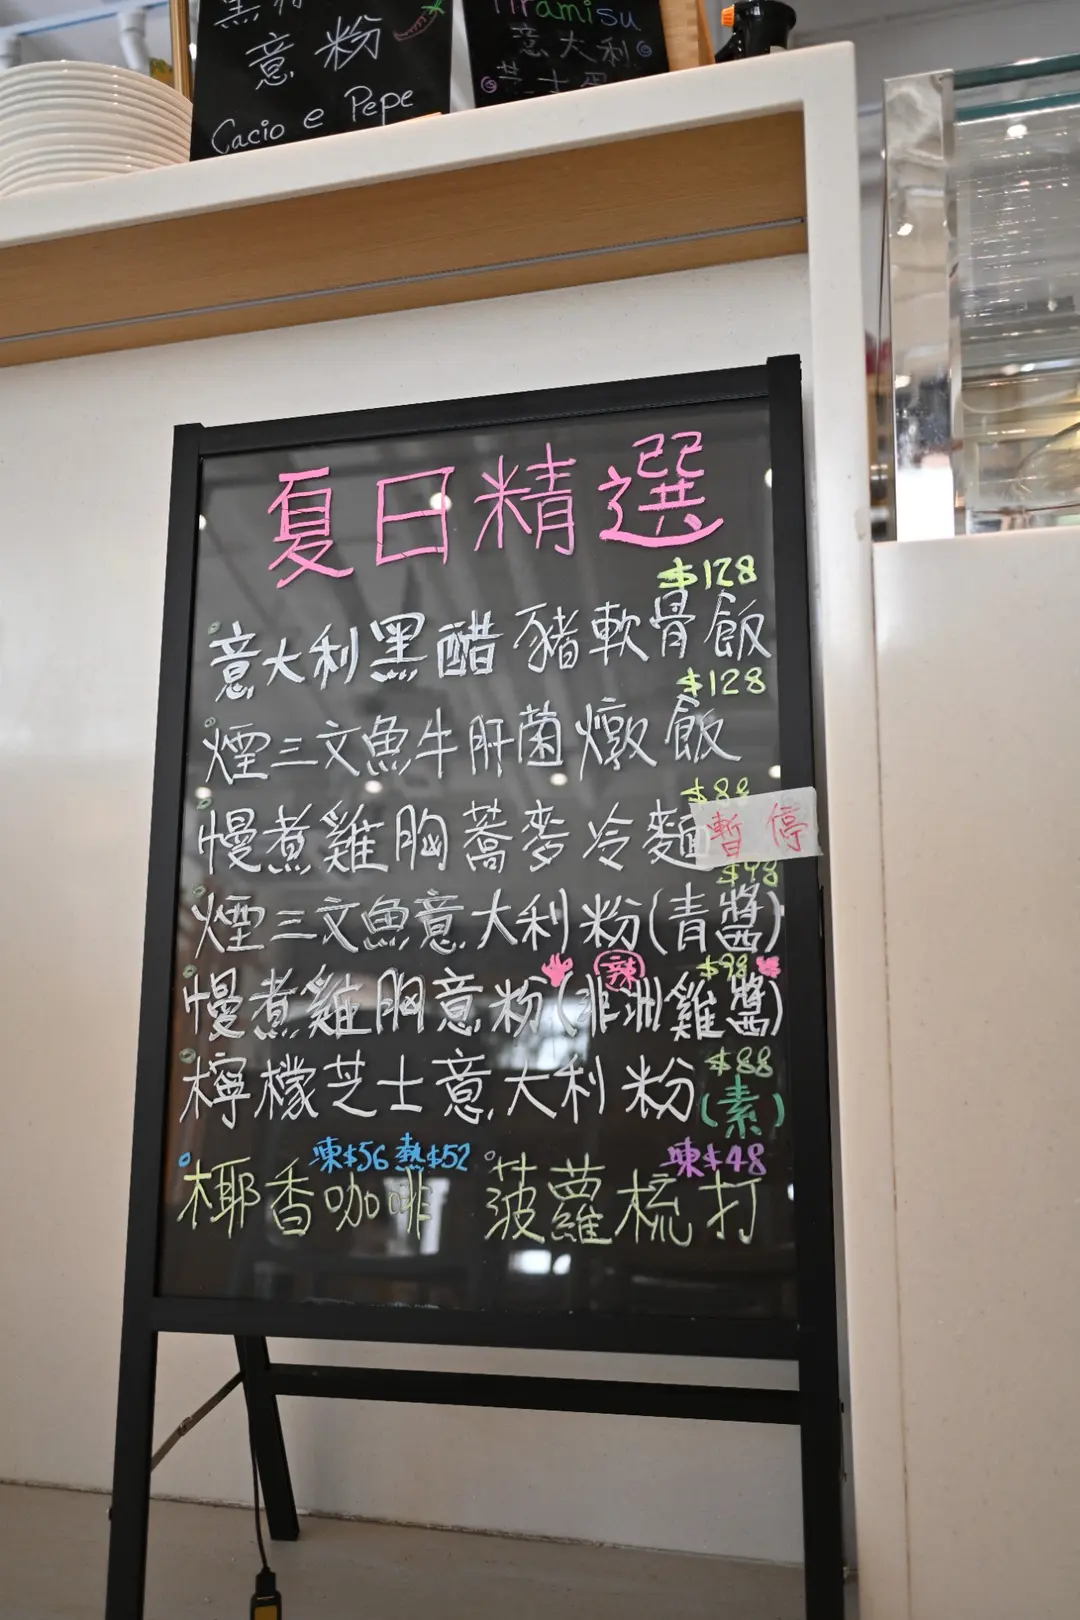 意粉
Cacio e Pepe
Tiramisu
意大利
芝士
夏日精選
$128
意大利黑醋豬軟骨飯
$128
煙三文魚牛肝菌燉飯
$88
慢煮雞胸蕎麥冷麵
暫停
$98
煙三文魚意大利粉(青醬)
辣 $98
慢煮雞胸意粉(非洲雞醬)
$88
檸檬芝士意大利粉(素)
凍$56 熱$52
椰香咖啡
凍$48
菠蘿梳打